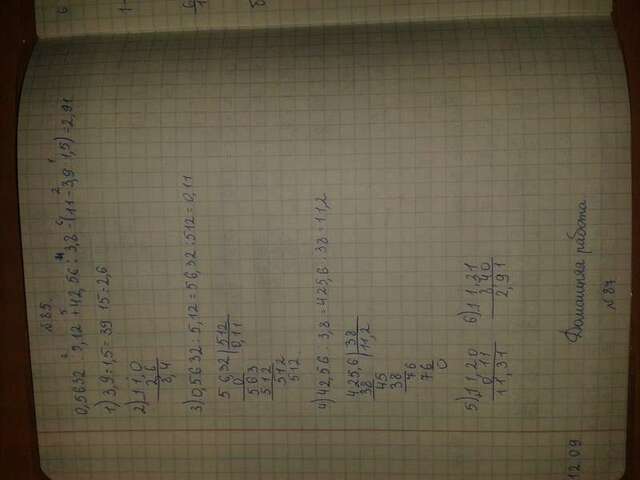 № 85.
0,5632 : 5,12 + 42,56 : 3,8 - (11 - 3,9 : 1,5) = 2,91
1) 3,9 : 1,5 = 39 : 15 = 2,6
2) 11,0
2,6
8,4
3) 0,5632 : 5,12 = 56,32 : 512 = 0,11
56,32 | 512
0 | 0,11
563
512
512
512
4) 42,56 : 3,8 = 425,6 : 38 = 11,2
425,6 | 38
38 | 11,2
45
38
76
76
0
5) 11,20
0,11
11,31
6) 11,31
8,40
2,91
12.09
Домашняя работа
№ 87